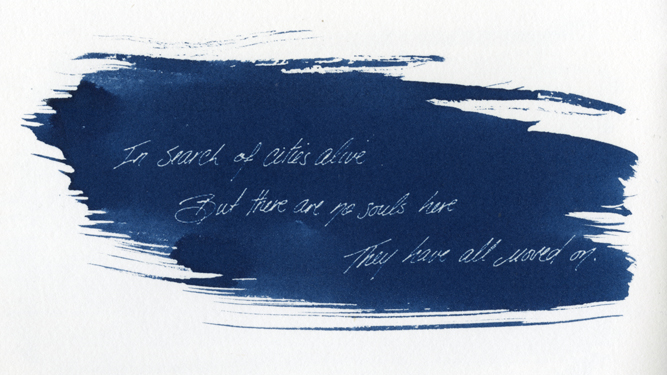 In search of cities alive
But there are no souls here
They have all moved on.